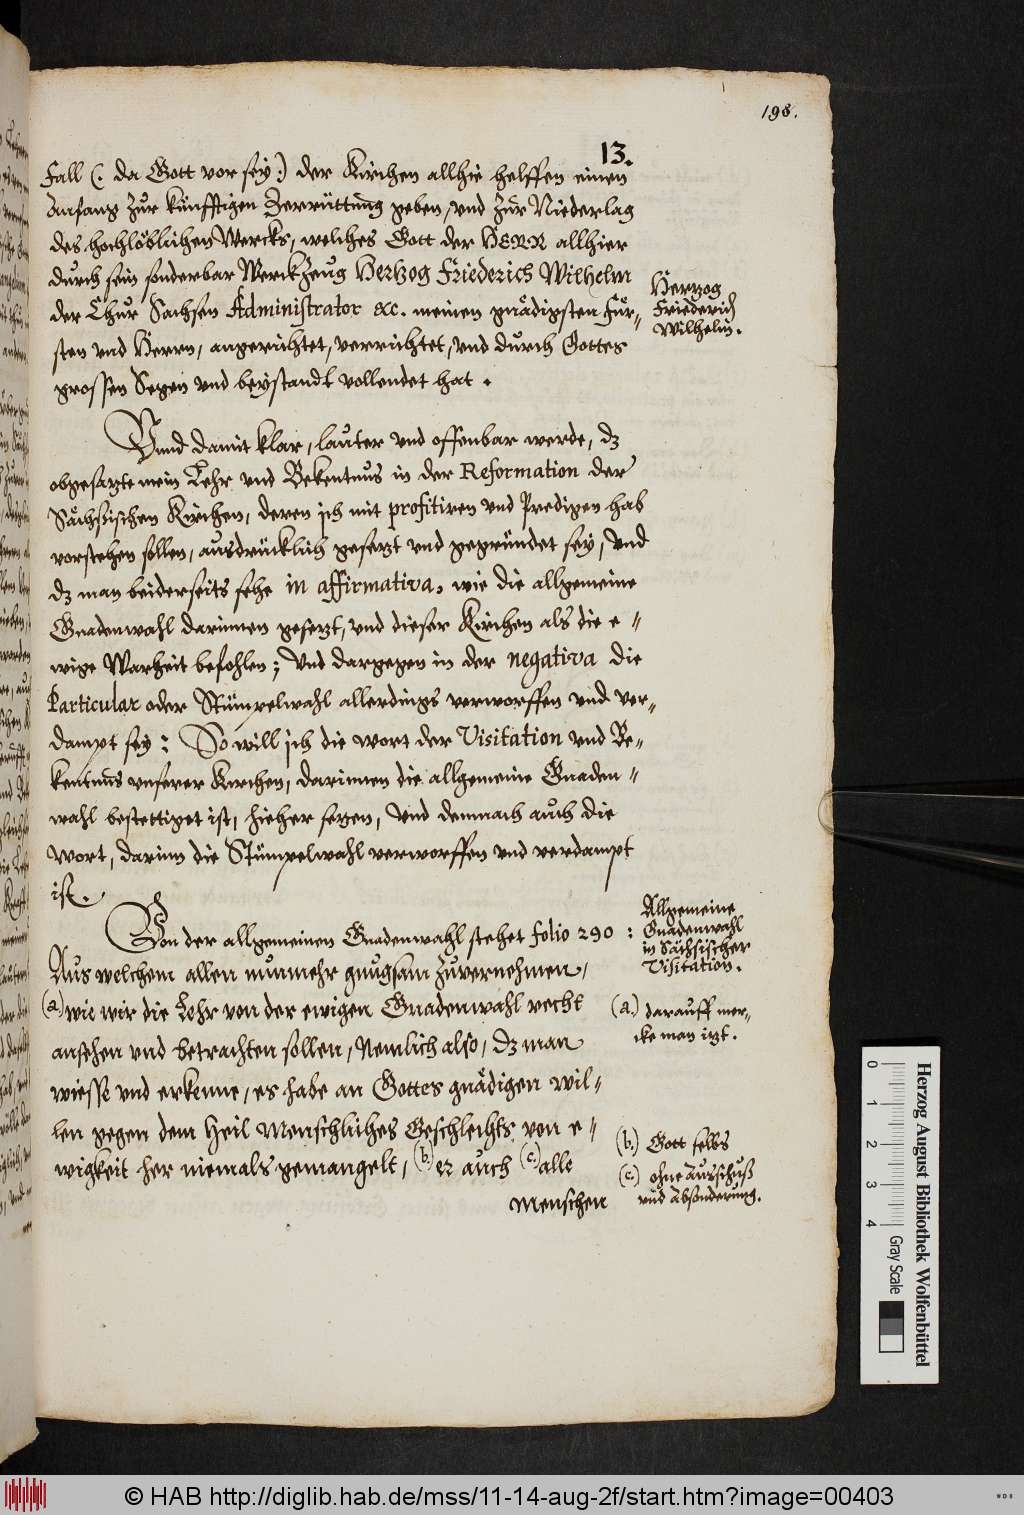 198.
13.
Fall (: da Gott vor sey :) der Kirchen allhie helffen einen
Anfang zur künfftigen Zerrüttung geben, vnd zur Niederlag
des hochlöblichen Wercks, welches Gott der HERR allhier
durch sein sonderbar Werckzeug Hertzog Friederich Wilhelm
der Chur Sachsen Administrator &c. meinen gnädigsten Für-
sten vnd Herrn, angerichtet, verrichtet, vnd durch Gottes
grossen Segen vnd beystandt vollendet hat.
Hertzog
Friederich
Wilhelm.
Vnnd damit klar, lauter vnd offenbar werde, dz
obgesagte mein Lehr vnd Bekentnus in der Reformation der
Sächsischen Kirchen, deren ich mit profitiren vnd Predigen hab
vorstehen sollen, ausdrücklich gesetzt vnd gegründet sey, Vnd
dz man beiderseits sehe in affirmativa, wie die allgemeine
Gnadenwahl darinnen gesetzt, vnd dieser Kirchen als die e-
wige Warheit befohlen; Vnd dargegen in der negativa die
Particular oder Stümpelwahl allerdings verworffen vnd ver-
dampt sey: So will ich die wort der Visitation vnd Be-
kentnus vnserer Kirchen, darinnen die allgemeine Gnaden-
wahl bestettiget ist, hieher setzen, Vnd demnach auch die
Wort, darinn die Stümpelwahl verworffen vnd verdampt
ist.
Von der allgemeinen Gnadenwahl stehet folio 290:
Aus welchem allen nunmehr gnugsam zuvernehmen,
(a.) wie wir die Lehr von der ewigen Gnadenwahl recht
ansehen vnd betrachten sollen, Nemlich also, dz man
wiesse vnd erkenne, es habe an Gottes gnädigen wil-
len gegen dem Heil Menschliches Geschlechts von e-
wigkeit her niemals gemangelt, (b.) er auch (c.) alle
Menschen
Allgemeine
Gnadenwahl
in Sächsischer
Visitation.
(a.) darauff mer-
cke man itzt.
(b.) Gott selbs
(c.) ohne Ausschuß
vnd Absonderung.
Herzog August Bibliothek Wolfenbüttel
0 1 2 3 4 Gray Scale
© HAB http://diglib.hab.de/mss/11-14-aug-2f/start.htm?image=00403